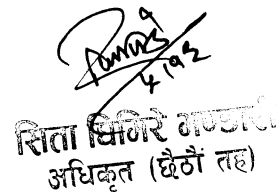 ४।९२
सिता घिमिरे भण्डारी
अधिकृत (छैठौं तह)